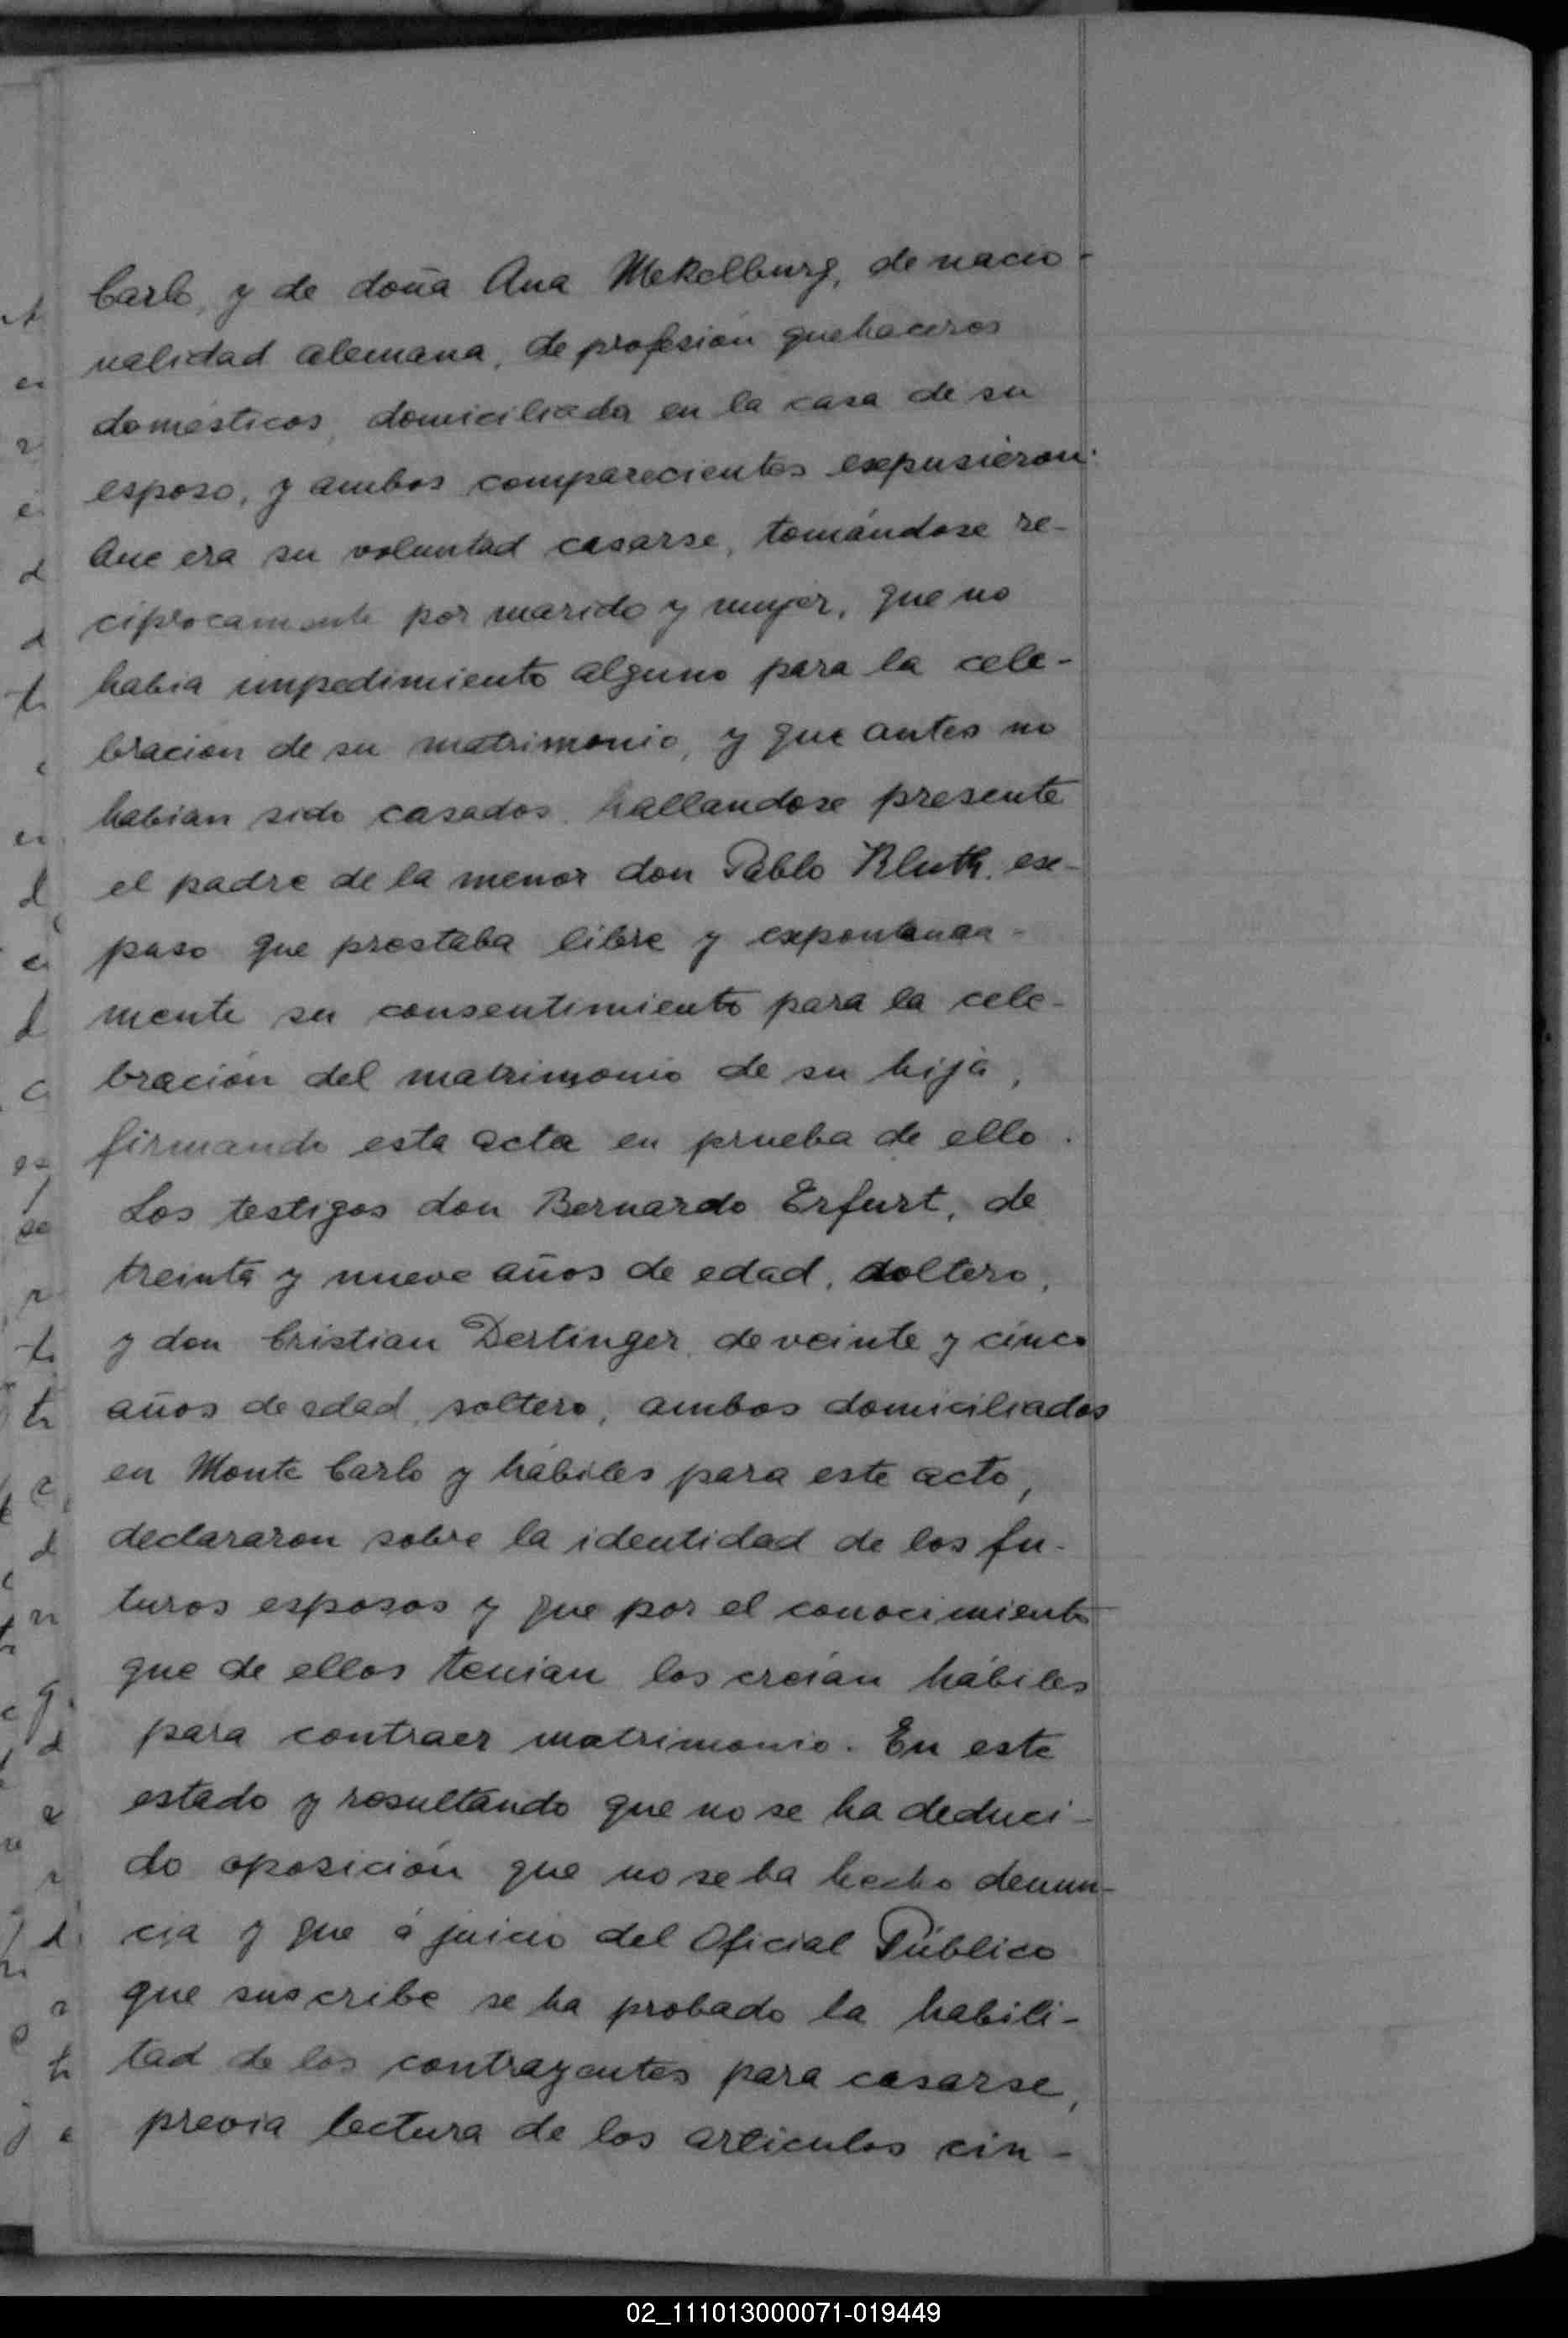 Carlo, y de doña Ana Mekelburg, de nacio-
nalidad alemana, de profesión quehaceres
domésticos, domiciliada en la casa de su
esposo, y ambos comparecientes expusieron:
Que era su voluntad casarse, tomándose re-
ciprocamente por marido y mujer, que no
habia impedimiento alguno para la cele-
bración de su matrimonio, y que antes no
habian sido casados. hallandose presente
el padre de la menor don Pablo Kluth, ex-
puso que prestaba libre y expontanea-
mente su consentimiento para la cele-
bración del matrimonio de su hija,
firmando esta acta en prueba de ello.
Los testigos don Bernardo Erfurt, de
treinta y nueve años de edad, doltero,
y don Cristian Dertinger, de veinte y cinco
años de edad, soltero, ambos domiciliados
en Monte Carlo y hábiles para este acto,
declararon sobre la identidad de los fu-
turos esposos y que por el conocimiento
que de ellos tenian los creian hábiles
para contraer matrimonio. En este
estado y resultando que no se ha deduci-
do oposición que no se ha hecho denun-
cia y que á juicio del Oficial Público
que suscribe se ha probado la habili-
tad de los contrayentes para casarse,
previa lectura de los articulos cin-
02_111013000071-019449